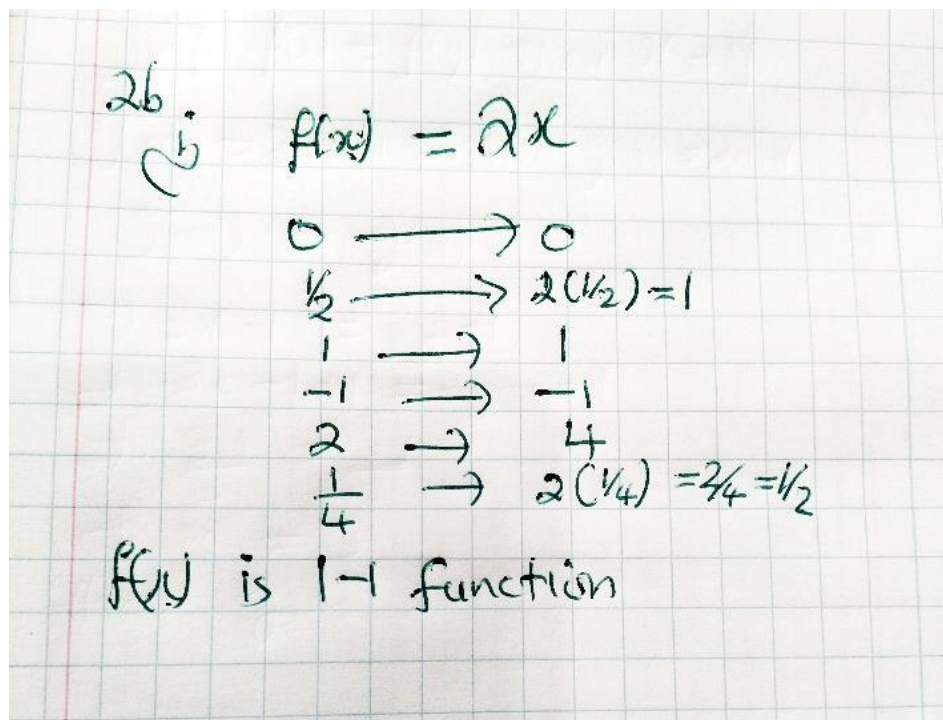 2b
i) f(x) = 2x
0 → 0
1/2 → 2(1/2) = 1
1 → 1
-1 → -1
2 → 4
1/4 → 2(1/4) = 2/4 = 1/2
f(x) is 1-1 function